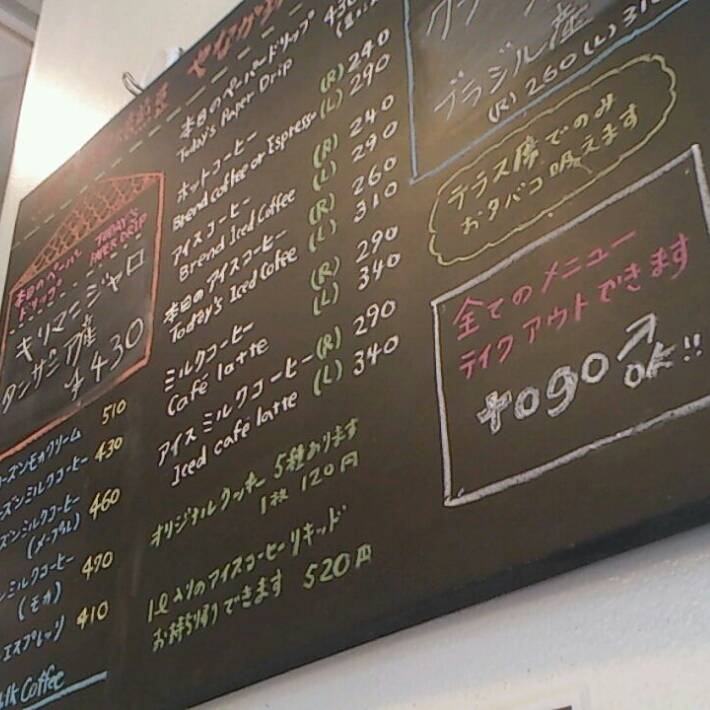 本日のペーパードリップ 430
Today's Paper Drip
ホットコーヒー (R) 240
Brend coffee or Espresso (L) 290
アイスコーヒー (R) 240
Brend Iced Coffee (L) 290
本日のアイスコーヒー (R) 260
Today's Iced Coffee (L) 310
ミルクコーヒー (R) 290
Café latte (L) 340
アイスミルクコーヒー (R) 290
Iced café latte (L) 340
オリジナルクッキー 5種あります
1枚 120円
1ℓ入りのアイスコーヒーリキッド
お持ち帰りできます 520円
本日のペーパー
ドリップ
TODAY'S
PAPER DRIP
キリマンジャロ
タンザニア産
¥430
ーズンモカクリーム 510
ーズンミルクコーヒー 430
ズンミルクコーヒー 460
(メープル)
ンミルクコーヒー 470
(モカ)
エスプレッソ 410
lk Coffee
ブラジル産
(R) 260 (L) 310
テラス席でのみ
おタバコ吸えます
全てのメニュー
テイクアウトできます
togo OK!!